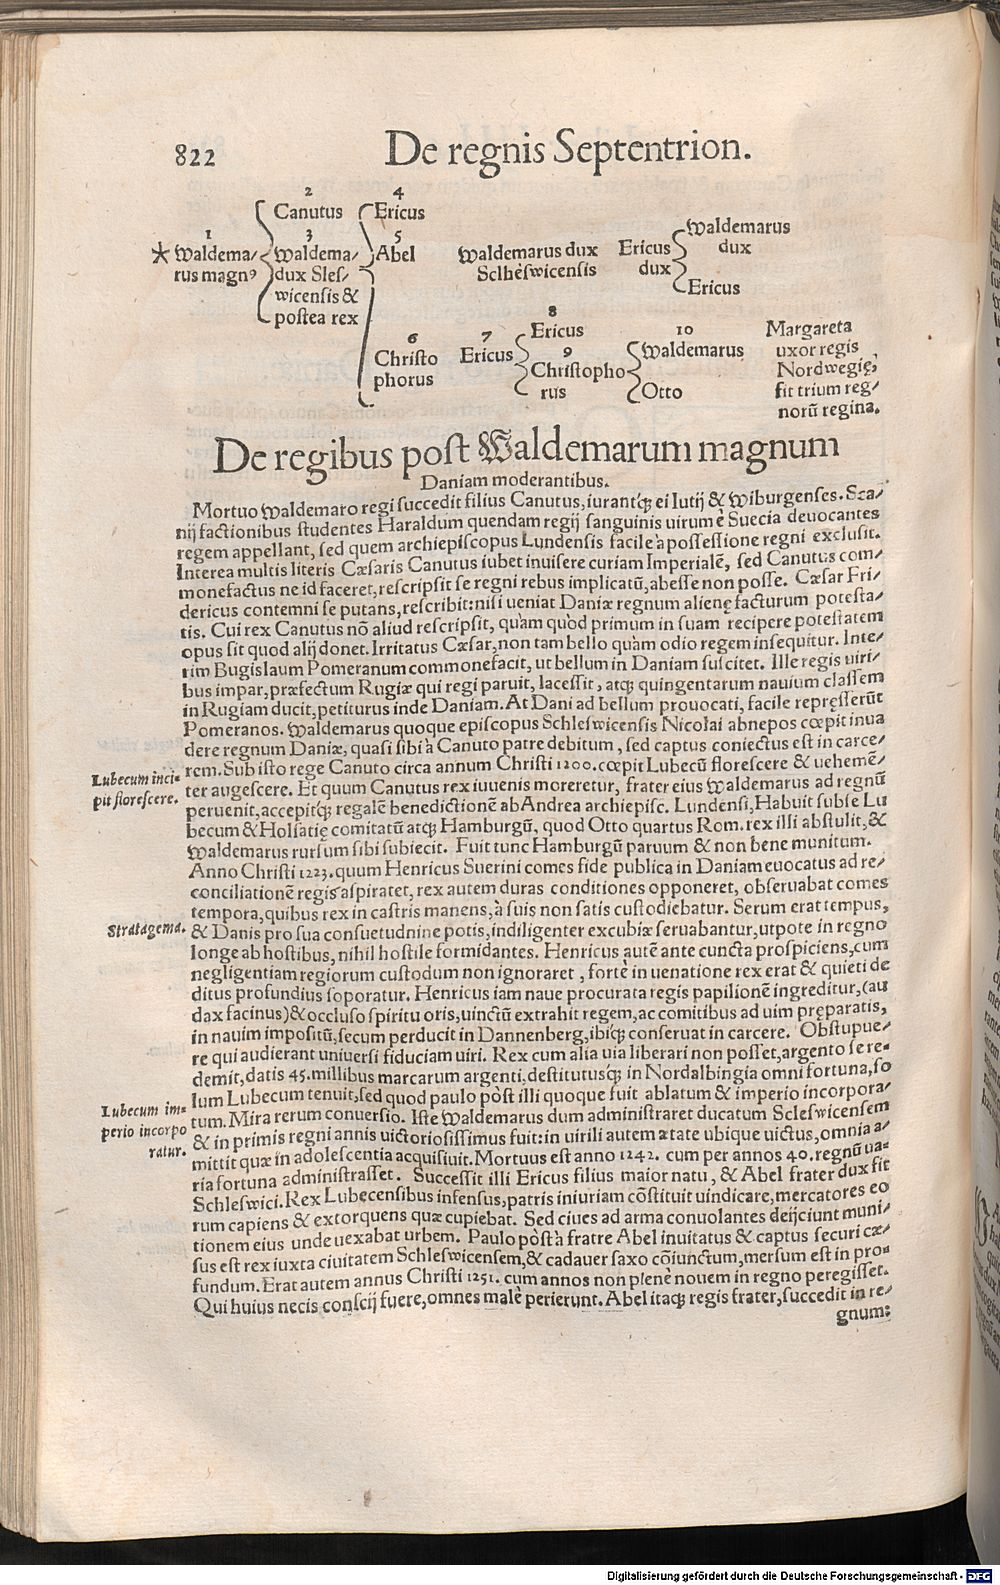 822 De regnis Septentrion.
2 4
Canutus Ericus
1 3 5
* Waldema/ Waldema/ Abel
rus magnꝰ dux Sles/
wicensis &
postea rex
Waldemarus dux
Sclhèswicensis
Ericus
dux
Waldemarus
dux
Ericus
6
Christo
phorus
7
Ericus
8
Ericus
9
Christopho
rus
10
Waldemarus
Otto
Margareta
uxor regis
Nordwegię,
fit trium reg/
norũ regina.
De regibus post Waldemarum magnum
Daniam moderantibus.
Mortuo Waldemaro regi succedit filius Canutus, iurantq́ꝫ ei Iutij & Wiburgenses. Sca/
nij factionibus studentes Haraldum quendam regij sanguinis uirum è Suecia deuocantes
regem appellant, sed quem archiepiscopus Lundensis facile à possessione regni exclusit.
Interea multis literis Cæsaris Canutus iubet inuisere curiam Imperialẽ, sed Canutus com/
monefactus ne id faceret, rescripsit se regni rebus implicatũ, abesse non posse. Cæsar Fri/
dericus contemni se putans, rescribit: nisi ueniat Daniæ regnum alienę facturum potesta/
tis. Cui rex Canutus nõ aliud rescripsit, quàm quòd primum in suam recipere potestatem
opus sit quod alij donet. Irritatus Cæsar, non tam bello quàm odio regem insequitur. Inte/
rim Bugislaum Pomeranum commonefacit, ut bellum in Daniam suscitet. Ille regis uiri/
bus impar, præfectum Rugiæ qui regi paruit, lacessit, atqꝫ quingentarum nauium classem
in Rugiam ducit, petiturus inde Daniam. At Dani ad bellum prouocati, facile repręsserũt
Pomeranos. Waldemarus quoque episcopus Schleswicensis Nicolai abnepos cœpit inua
dere regnum Daniæ, quasi sibi à Canuto patre debitum, sed captus coniectus est in carce/
Lubecum inci=
pit florescere.
rem. Sub isto rege Canuto circa annum Christi 1200. cœpit Lubecũ florescere & uehemẽ/
ter augescere. Et quum Canutus rex iuuenis moreretur, frater eius Waldemarus ad regnũ
peruenit, accepitq́ꝫ regalẽ benedictionẽ ab Andrea archiepisc. Lundensi, Habuit sub se Lu
becum & Holsatię comitatũ atqꝫ Hamburgũ, quod Otto quartus Rom. rex illi abstulit, &
Waldemarus rursum sibi subiecit. Fuit tunc Hamburgũ paruum & non bene munitum.
Anno Christi 1223. quum Henricus Suerini comes fide publica in Daniam euocatus ad re/
conciliationẽ regis aspiraret, rex autem duras conditiones opponeret, obseruabat comes
tempora, quibus rex in castris manens, à suis non satis custodiebatur. Serum erat tempus,
Stratagema.
& Danis pro sua consuetudnine potis, indiligenter excubiæ seruabantur, utpote in regno
longe ab hostibus, nihil hostile formidantes. Henricus autẽ ante cuncta prospiciens, cum
negligentiam regiorum custodum non ignoraret, fortè in uenatione rex erat & quieti de
ditus profundius soporatur. Henricus iam naue procurata regis papilionẽ ingreditur, (au
dax facinus) & occluso spiritu oris, uinctũ extrahit regem, ac comitibus ad uim pręparatis,
in nauim impositũ, secum perducit in Dannenberg, ibiq́ꝫ conseruat in carcere. Obstupue/
re qui audierant uniuersi fiduciam uiri. Rex cum alia uia liberari non posset, argento se re/
demit, datis 45. millibus marcarum argenti, destitutusq́ꝫ in Nordalbingia omni fortuna, so
Lubecum im=
perio incorpo
ratur.
lum Lubecum tenuit, sed quod paulo pòst illi quoque fuit ablatum & imperio incorpora/
tum. Mira rerum conuersio. Iste Waldemarus dum administraret ducatum Scleswicensem
& in primis regni annis uictoriosissimus fuit: in uirili autem ætate ubique uictus, omnia a/
mittit quæ in adolescentia acquisiuit. Mortuus est anno 1242. cum per annos 40. regnũ ua=
ria fortuna administrasset. Successit illi Ericus filius maior natu, & Abel frater dux fit
Schleswici. Rex Lubęcensibus infensus, patris iniuriam cõstituit uindicare, mercatores eo
rum capiens & extorquens quæ cupiebat. Sed ciues ad arma conuolantes deijciunt muni/
tionem eius unde uexabat urbem. Paulo pòst à fratre Abel inuitatus & captus securi cæ/
sus est rex iuxta ciuitatem Schleswicensem, & cadauer saxo cõiunctum, mersum est in pro/
fundum. Erat autem annus Christi 1251. cum annos non plenè nouem in regno peregisset.
Qui huius necis conscij fuere, omnes malè perierunt. Abel itaqꝫ regis frater, succedit in re/
gnum:
Digitalisierung gefördert durch die Deutsche Forschungsgemeinschaft - DFG